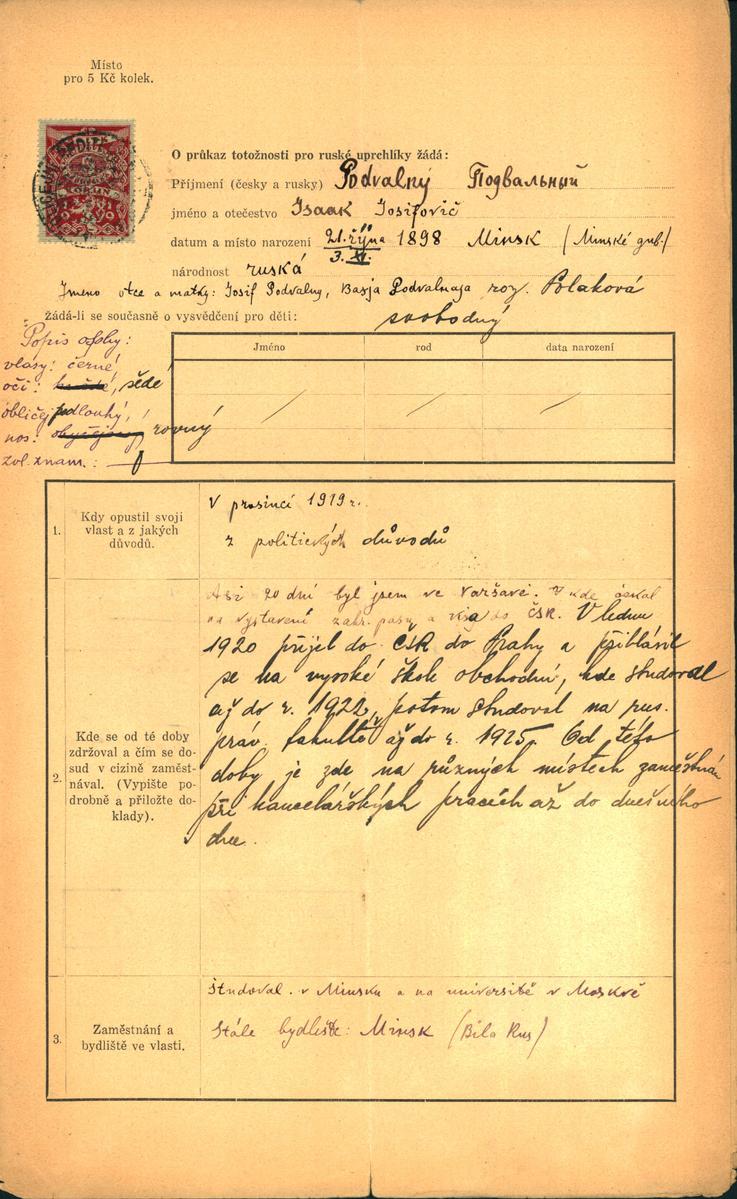 Místo
pro 5 Kč kolek.
O průkaz totožnosti pro ruské uprchlíky žádá:
Příjmení (česky a rusky) Podvalný Подвальный
jméno a otečestvo Isaak Josifovič
datum a místo narození 21. října 1898 Minsk (Minské gub.)
3. XI.
národnost ruská
Jmeno otce a matky: Josif Podvalny, Basja Podvalnaja roz. Polaková
žádá-li se současně o vysvědčení pro děti: svobodný
Popis osoby:
vlasy: černé,
oči: šedé
obličej podlouhý,
nos: rovný
zvl. znam.:
Jméno rod data narození
1. Kdy opustil svoji
vlast a z jakých
důvodů.
V prosinci 1919 r.
z politických důvodů
2. Kde se od té doby
zdržoval a čím se do-
sud v cizině zaměst-
nával. (Vypište po-
drobně a přiložte do-
klady).
Asi 20 dní byl jsem ve Varšavě. kde čekal
na vystavení zahr. pasu a visa do ČSR. V lednu
1920 přijel do ČSR do Prahy a přihlásil
se na vysoké škole obchodní, kde studoval
až do r. 1922, potom studoval na rus.
práv. fakultě až do r. 1925. Od této
doby je zde na různých místech zaměstnán
při kancelářských pracích až do dnešního
dne.
3. Zaměstnání a
bydliště ve vlasti.
Študoval. v Minsku a na universitě v Moskvě
Stále bydliště: Minsk (Bila Rus)